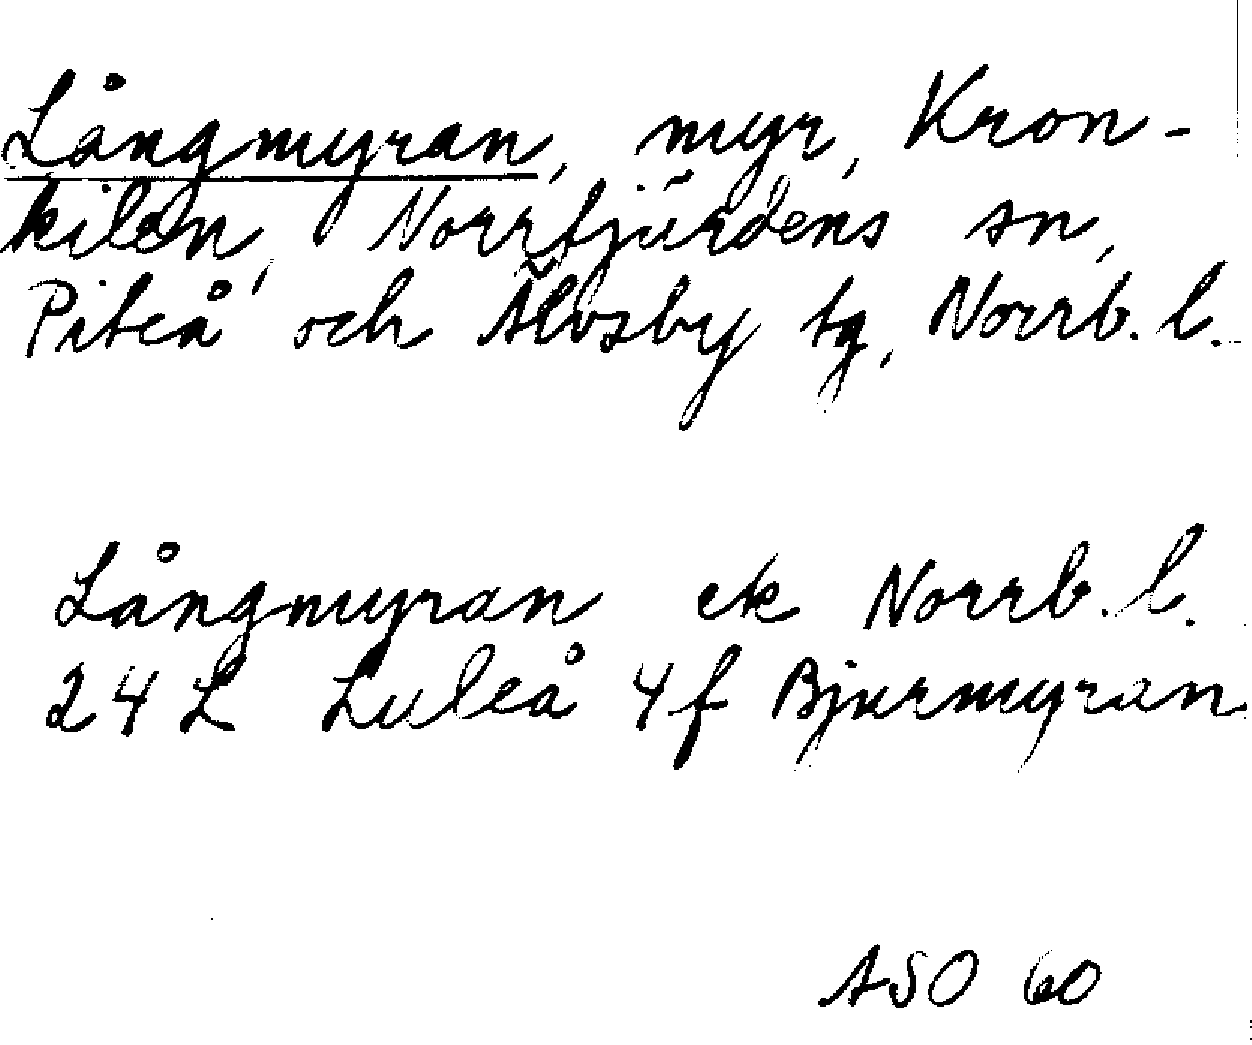 Långmyran, myr, Kron-
kilen, Norrfjärdens sn,
Piteå och Älvsby tg, Norrb. l.
Långmyran ek Norrb. l.
24 L Luleå 4f Bjurmyran
ASO 60